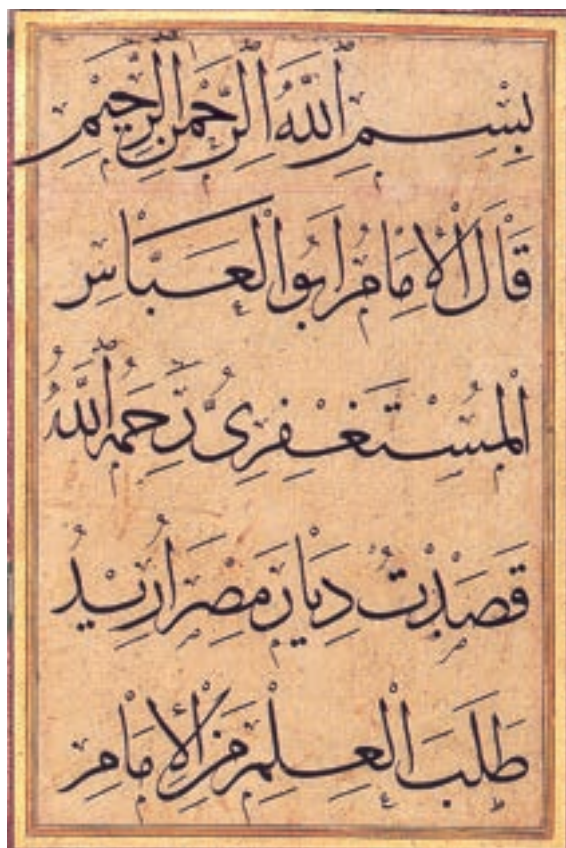 بِسْمِ اللّٰهِ الرَّحْمٰنِ الرَّحِيْمِ
قَالَ الْاِمَامُ اَبُو الْعَبَّاسِ
الْمُسْتَغْفِرِىُّ رَحِمَهُ اللّٰهُ
قَصَدْتُ دِيَارَ مِصْرَ اُرِيْدُ
طَلَبَ الْعِلْمِ مِنَ الْاِمَامِ